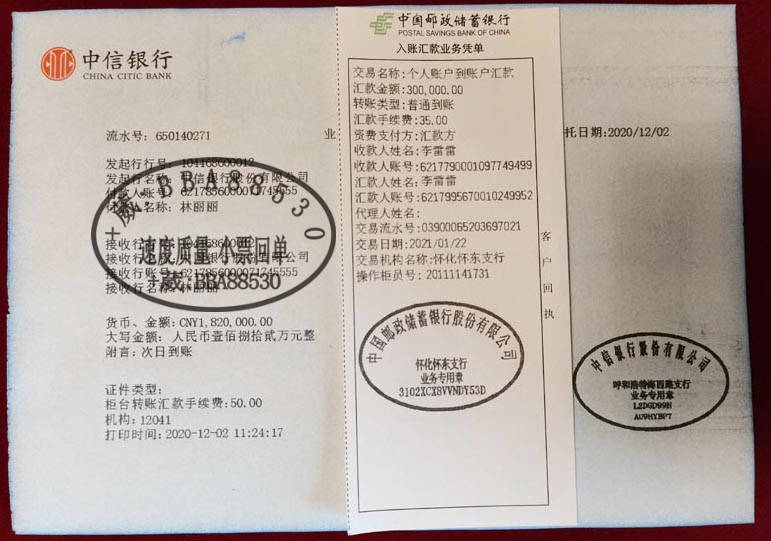 中信银行
CHINA CITIC BANK
流水号: 650140271
业
托日期:2020/12/02
发起行行号: 104468600012
发起行名称: 中信银行股份有限公司
付款人账号: 6217856000071745555
名称: 林丽丽
接收行
接收行 股份有限公司
接收行账号:6217856000071745555
接收行名称:林丽丽
货币、金额:CNY1,820,000.00
大写金额: 人民币壹佰捌拾贰万元整
附言: 次日到账
证件类型:
柜台转账汇款手续费:50.00
机构: 12041
打印时间: 2020-12-02 11:24:17
+ 威: BBA88530
速度质量 小票回单
+葳:BBA88530
中国邮政储蓄银行
POSTAL SAVINGS BANK OF CHINA
入账汇款业务凭单
交易名称:个人账户到账户汇款
汇款金额:300,000.00
转账类型:普通到账
汇款手续费:35.00
资费支付方:汇款方
收款人姓名:李雷雷
收款人账号:6217790001097749499
汇款人姓名:李雷雷
汇款人账号:6217995670010249952
代理人姓名:
交易流水号:03900065203697021
交易日期:2021/01/22
交易机构名称:怀化怀东支行
操作柜员号: 20111141731
客户回执
中国邮政储蓄银行股份有限公司
怀化怀东支行
业务专用章
3102XCX8VVNDY53D
中信银行股份有限公司
呼和浩特海西路支行
业务专用章
L2DGD99N
AU9HYBP7